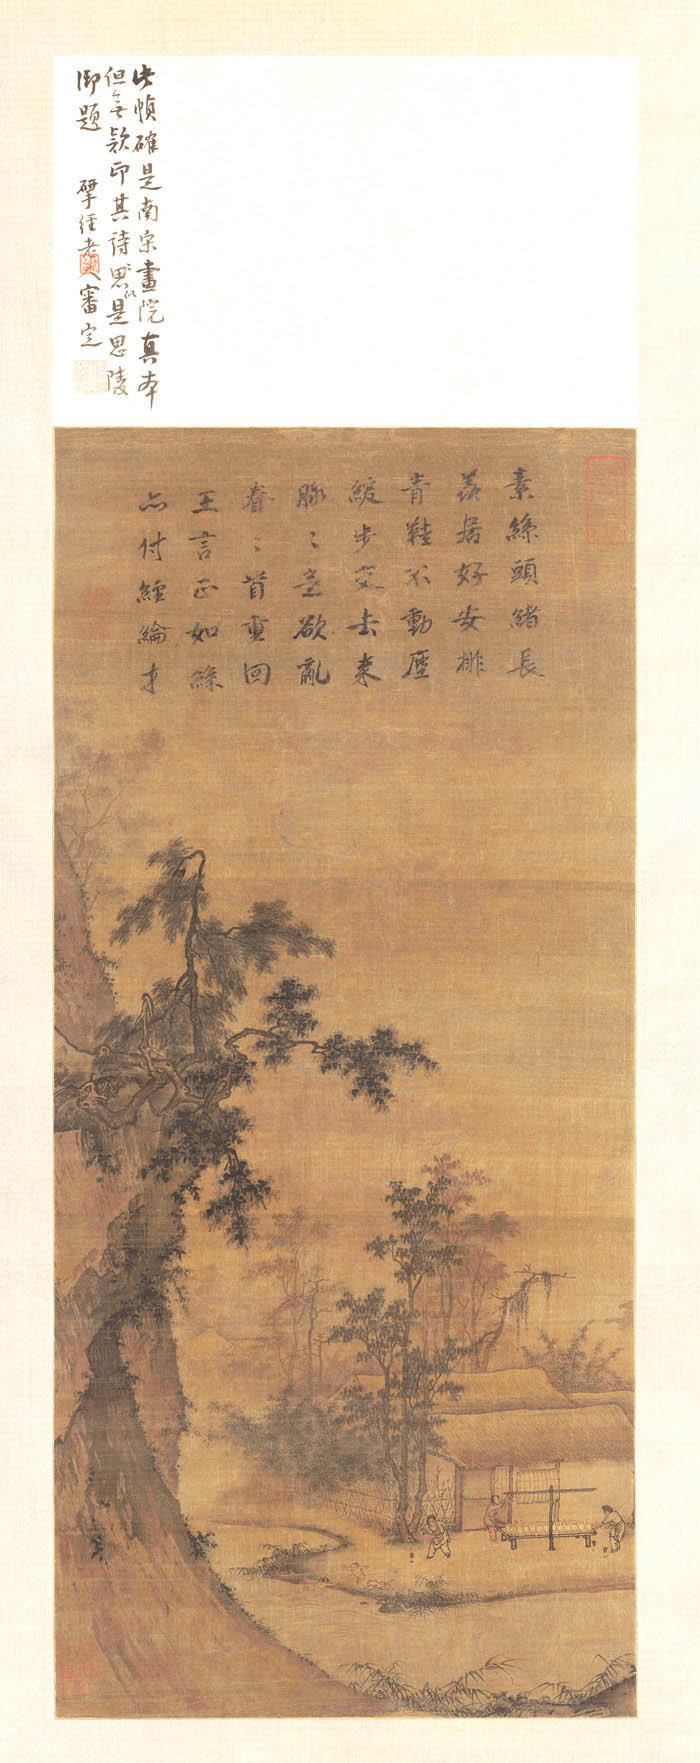 此幀確是南宋畫院真本
但無款印其詩思似是思陵
御題 揅經老人審定
素絲頭緒長
羨居好安排
青鞋不動塵
緩步交去来
脉〻意欲亂
眷〻首重回
王言正如絲
亦付經綸才